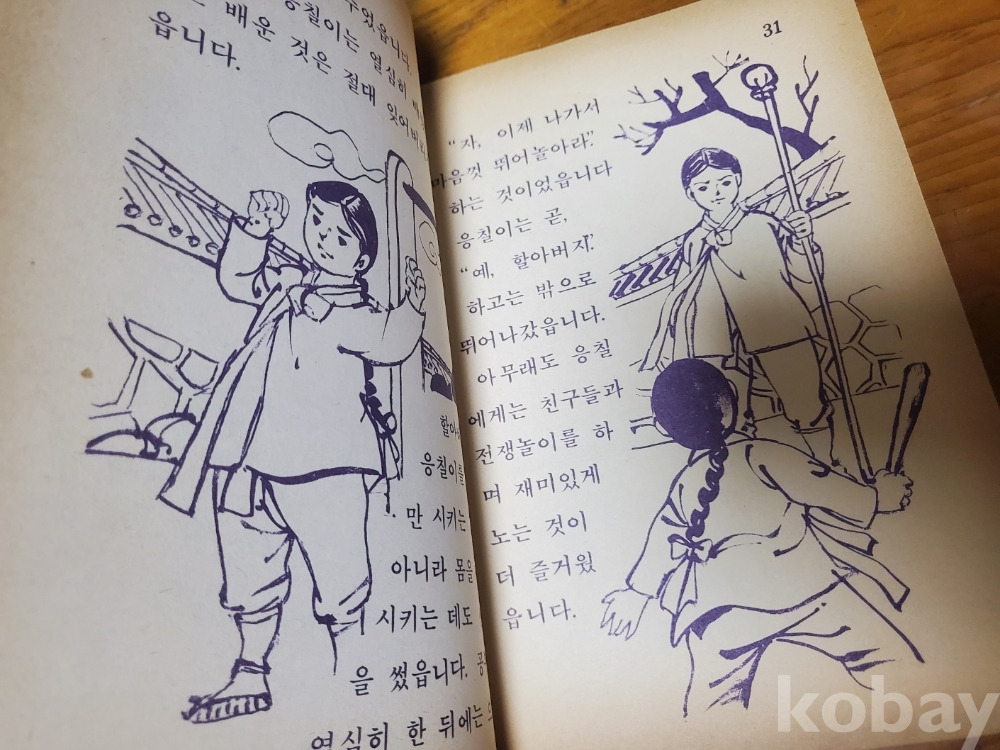 응칠이는 열심히
배운 것은 절대 잊어버
읍니다.
응칠이를
만 시키는
아니라 몸을
시키는 데도
을 썼읍니다.
열심히 한 뒤에는
31
"자, 이제 나가서
마음껏 뛰어놀아라."
하는 것이었읍니다
응칠이는 곧,
"예, 할아버지."
하고는 밖으로
뛰어나갔읍니다.
아무래도 응칠
에게는 친구들과
전쟁놀이를 하
며 재미있게
노는 것이
더 즐거웠
읍니다.
kobay